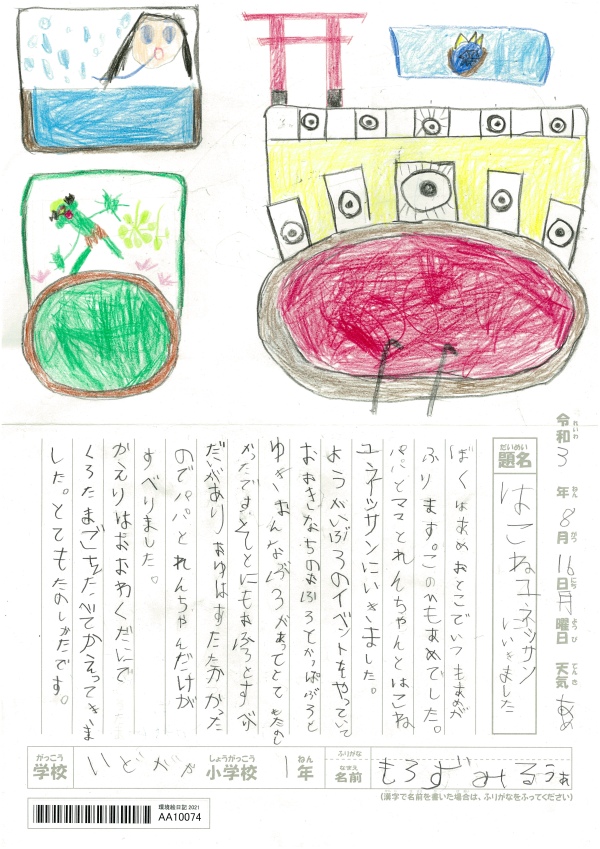 令和3年8月16日月曜日 天気 あめ
れいわ ねん がつ にち ようび てんき
だいめい
題名
はこねユネッサン
にいきました
ぼくはあめおとこでいつもあめが
ふります。このひもあめでした。
パパとママとれんちゃんとはこね
ユネッサンにいきました。
ようかいぶろのイベントをやっていて
おおきいなちのおぶろとかっぱぶろと
ゆきおんなぶろがあってとてもたのし
かったです。そとにもおふろとすべ
だいがありおゆはすたたかかった
のでパパとれんちゃんだけが
すべりました。
かえりはおおわくだにで
くろたまごをたべてかえってきま
した。とてもたのしかたです。
がっこう しょうがっこう ねん ふりがな なまえ
学校 いどがや 小学校 1年 名前 もろずみるうあ
(漢字で名前を書いた場合は、ふりがなをふってください)
環境絵日記 2021
AA10074